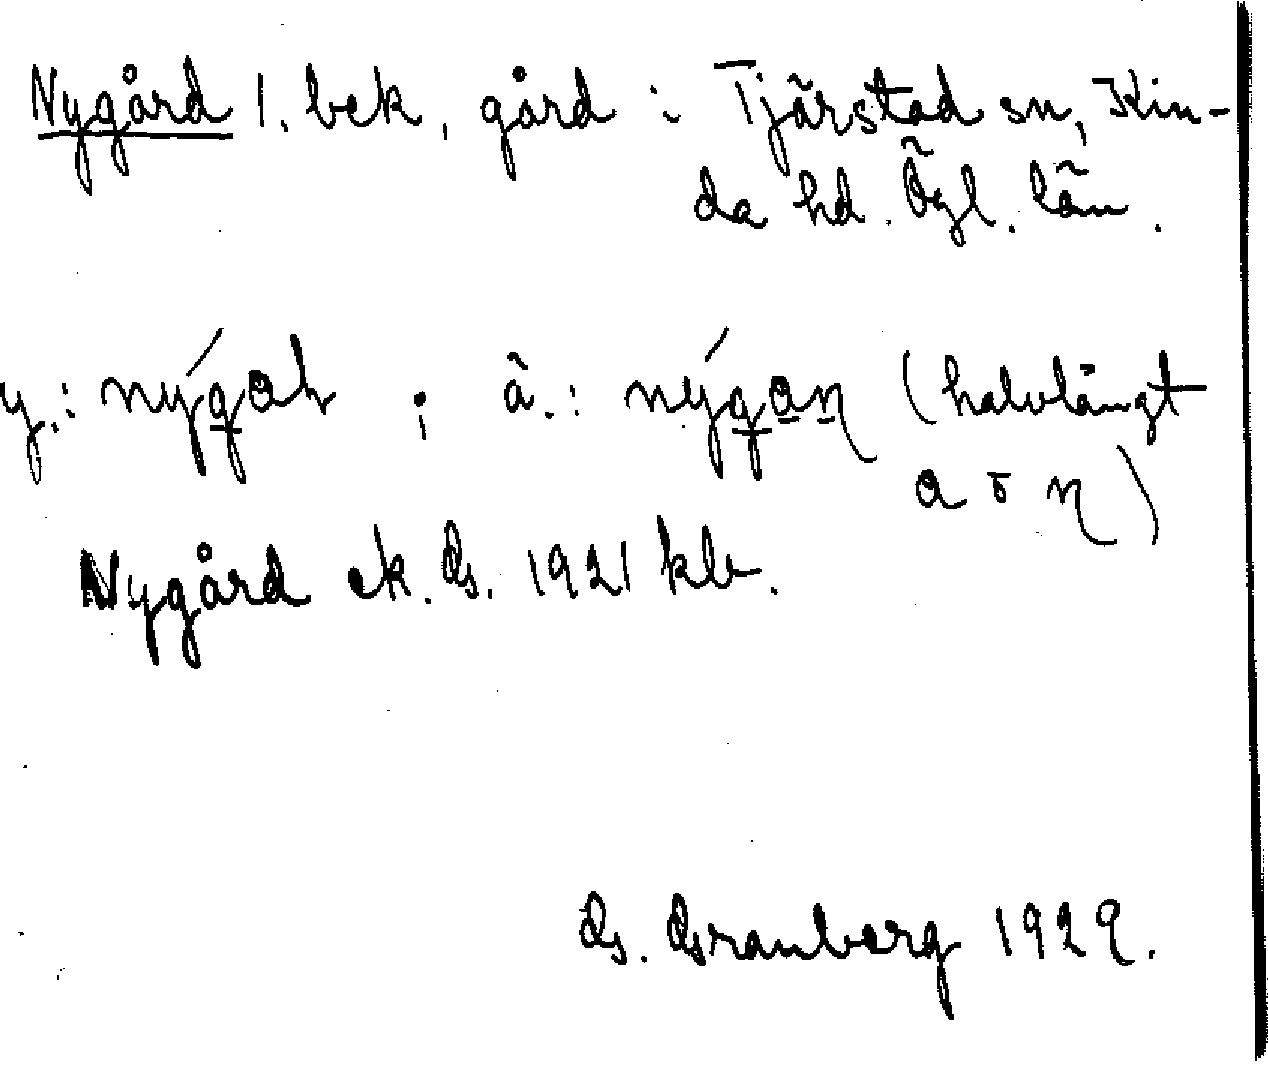 Nygård 1. bek, gård i Tjärstad sn, Kin-
da hd. Ögl. län.
y.: nýgaḷ ; ä.: nýgaṇ (halvlångt
a o ṇ)
Nygård ek. G. 1921 kb.
G. Granberg 1929.